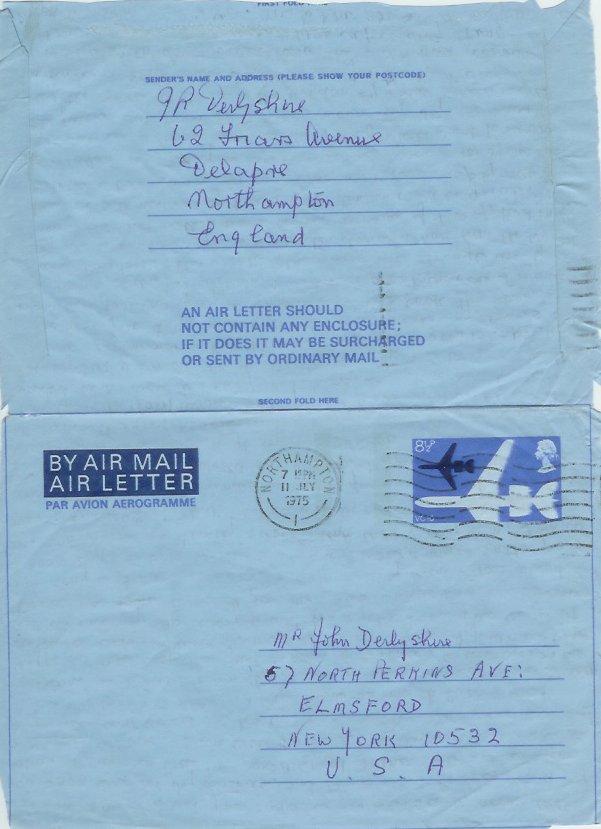 FIRST FOLD
SENDER'S NAME AND ADDRESS (PLEASE SHOW YOUR POSTCODE)
JR Derbyshire
62 Friars Avenue
Delapre
Northampton
England
AN AIR LETTER SHOULD
NOT CONTAIN ANY ENCLOSURE;
IF IT DOES IT MAY BE SURCHARGED
OR SENT BY ORDINARY MAIL
SECOND FOLD HERE
BY AIR MAIL
AIR LETTER
PAR AVION AEROGRAMME
NORTHAMPTON
11 JLY
1975
1
8½P
MR John Derbyshire
57 NORTH PERKINS AVE:
ELMSFORD
NEW YORK 10532
U. S. A